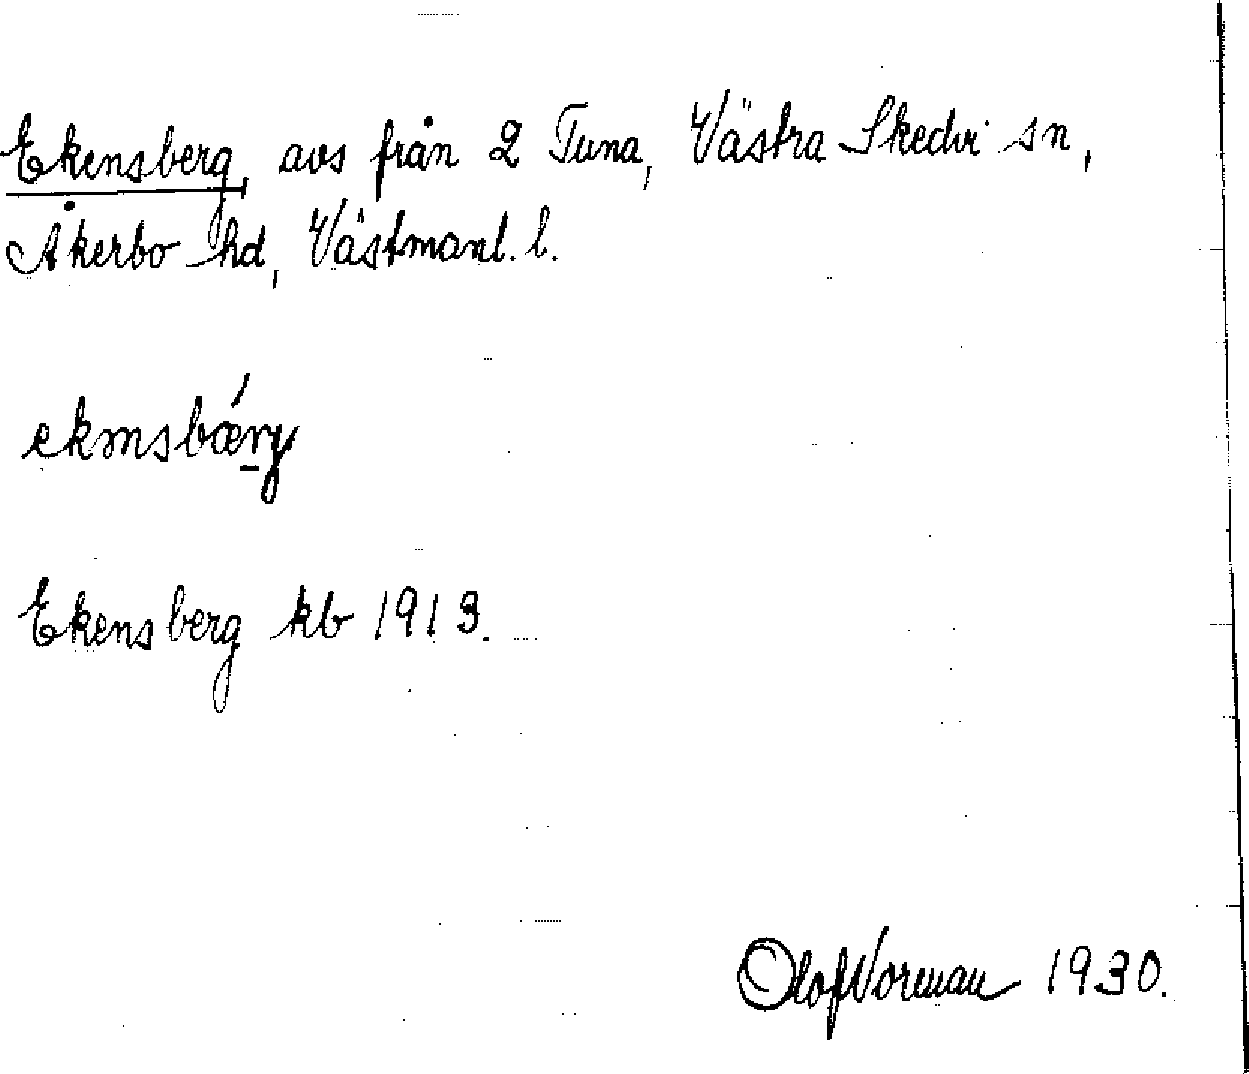 Ekensberg, avs från 2 Tuna, Västra Skedvi sn,
Åkerbo hd, Västmanl. l.
ekənsbǽrg
Ekensberg kb 1913.
Olof Norman 1930.